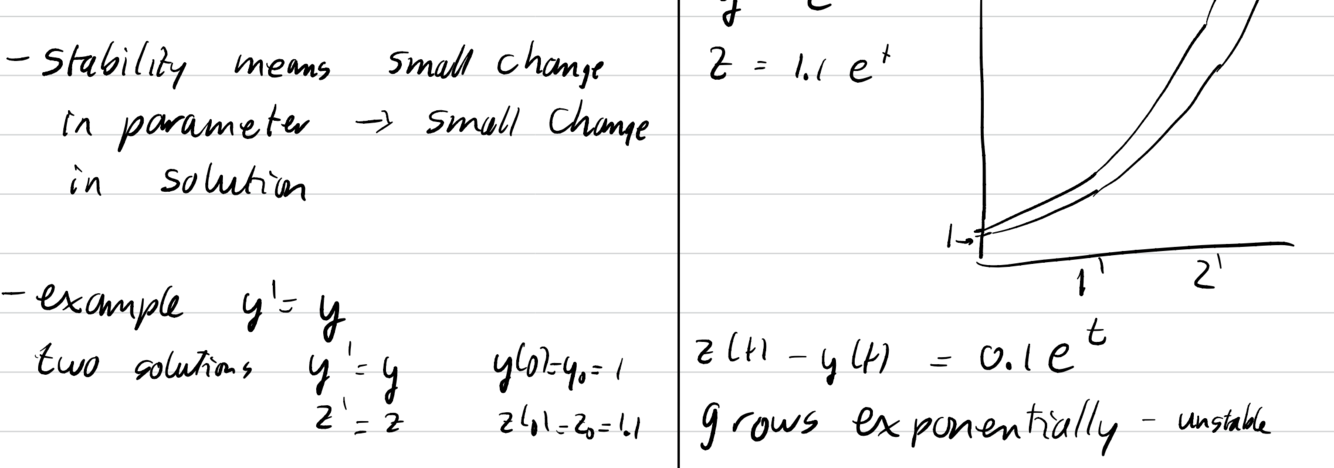 - stability means small change
in parameter → small change
in solution
- example y' = y
two solutions y' = y y(0)=y₀=1
z' = z z(0)=z₀=1.1
z = 1.1 e^t
1→
1 2
z(t) - y(t) = 0.1 e^t
grows exponentially - unstable